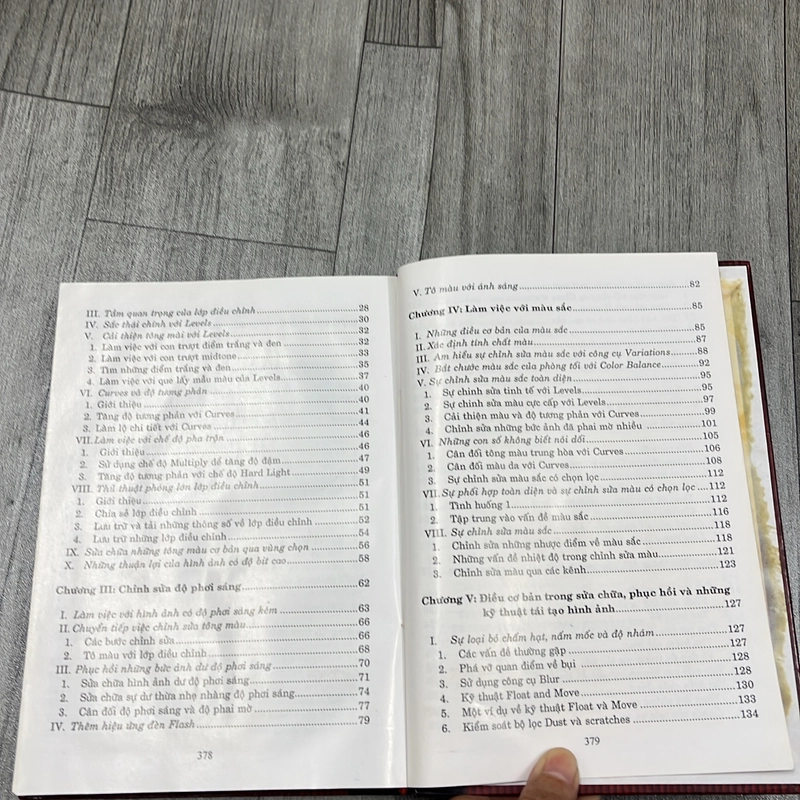 III. Tầm quan trọng của lớp điều chỉnh 28
IV. Sắc thái chính với Levels 30
V. Cải thiện tông mài với Levels 32
1. Làm việc với con trượt điểm trắng và đen 32
2. Làm việc với con trượt midtone 33
3. Tìm những điểm trắng và đen 35
4. Làm việc với que lấy mẫu màu của Levels 37
VI. Curves và độ tương phản 40
1. Giới thiệu 40
2. Tăng độ tương phản với Curves 41
3. Làm lộ chi tiết với Curves 44
VII. Làm việc với chế độ pha trộn 46
1. Giới thiệu 46
2. Sử dụng chế độ Multiply để tăng độ đậm 47
3. Tăng độ tương phản với chế độ Hard Light 49
VIII. Thủ thuật phóng lớn lớp điều chỉnh 51
1. Giới thiệu 51
2. Chia sẻ lớp điều chỉnh 51
3. Lưu trữ và tải những thông số về lớp điều chỉnh 52
4. Lưu trữ những lớp điều chỉnh 54
IX. Sửa chữa những tông màu cơ bản qua vùng chọn 56
X. Những thuận lợi của hình ảnh có độ bit cao 58
Chương III: Chỉnh sửa độ phơi sáng 62
I. Làm việc với hình ảnh có độ phơi sáng kém 63
II. Chuyển tiếp việc chỉnh sửa tông màu 66
1. Các bước chỉnh sửa 66
2. Tô màu với lớp điều chỉnh 68
III. Phục hồi những bức ảnh dư độ phơi sáng 70
1. Sửa chữa hình ảnh dư độ phơi sáng 71
2. Sửa chữa sự dư thừa nhẹ nhàng độ phơi sáng 74
3. Cân đối độ phơi sáng và độ phai mờ 77
IV. Thêm hiệu ứng đèn Flash 79
378
V. Tô màu với ánh sáng 82
Chương IV: Làm việc với màu sắc 85
I. Những điều cơ bản của màu sắc 85
II. Xác định tính chất màu 87
III. Am hiểu sự chỉnh sửa màu với công cụ Variations 88
IV. Bắt chước màu sắc của phòng tối với Color Balance 92
V. Sự chỉnh sửa màu sắc toàn diện 95
1. Sự chỉnh sửa tinh tế với Levels 95
2. Sự chỉnh sửa màu cực cấp với Levels 97
3. Cải thiện màu và độ tương phản với Curves 99
4. Chỉnh sửa những bức ảnh đã phai màu nhiều 101
VI. Những con số không biết nói dối 105
1. Cân đối tông màu trung hòa với Curves 106
2. Cân đối màu da với Curves 108
3. Sự chỉnh sửa màu sắc có chọn lọc 112
VII. Sự phối hợp toàn diện và sự chỉnh sửa màu có chọn lọc 112
1. Tình huống 1 112
2. Tập trung vào vấn đề màu sắc 116
VIII. Sự chỉnh sửa màu sắc 118
1. Chỉnh sửa những nhược điểm về màu sắc 118
2. Những vấn đề nhiệt độ trong chỉnh sửa màu 121
3. Chỉnh sửa màu qua các kênh 123
Chương V: Điều cơ bản trong sửa chữa, phục hồi và những
kỹ thuật tái tạo hình ảnh 127
I. Sự loại bỏ chấm hạt, nấm mốc và độ nhám 127
1. Các vấn đề thường gặp 127
2. Phá vỡ quan điểm về bụi 128
3. Sử dụng công cụ Blur 128
4. Kỹ thuật Float and Move 130
5. Một ví dụ về kỹ thuật Float và Move 133
6. Kiểm soát bộ lọc Dust và scratches 134
379